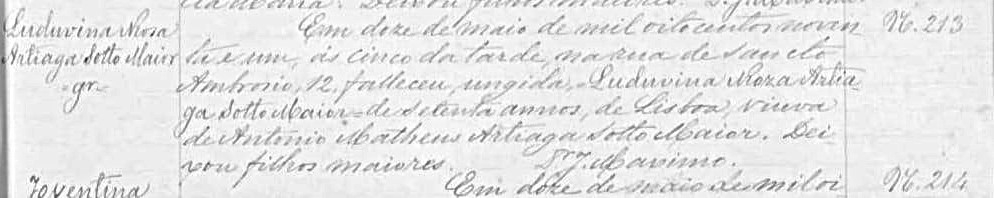 Deixou filhos maiores.
Luduvina Rosa
Artiaga Sotto Maior
gr.
Em doze de maio de mil oitocentos noven
ta e um, ás cinco da tarde, na rua de Sancto
Ambrosio, 12, falleceu, ungida, Luduvina Roza Artia-
ga Sotto Maior de setenta annos, de Lisboa, viuva
de Antonio Matheus Artiaga Sotto Maior. Dei
xou filhos maiores. Pr. J. Maximo.
N. 213
Joventina
Em doze de maio de mil oi
N. 214